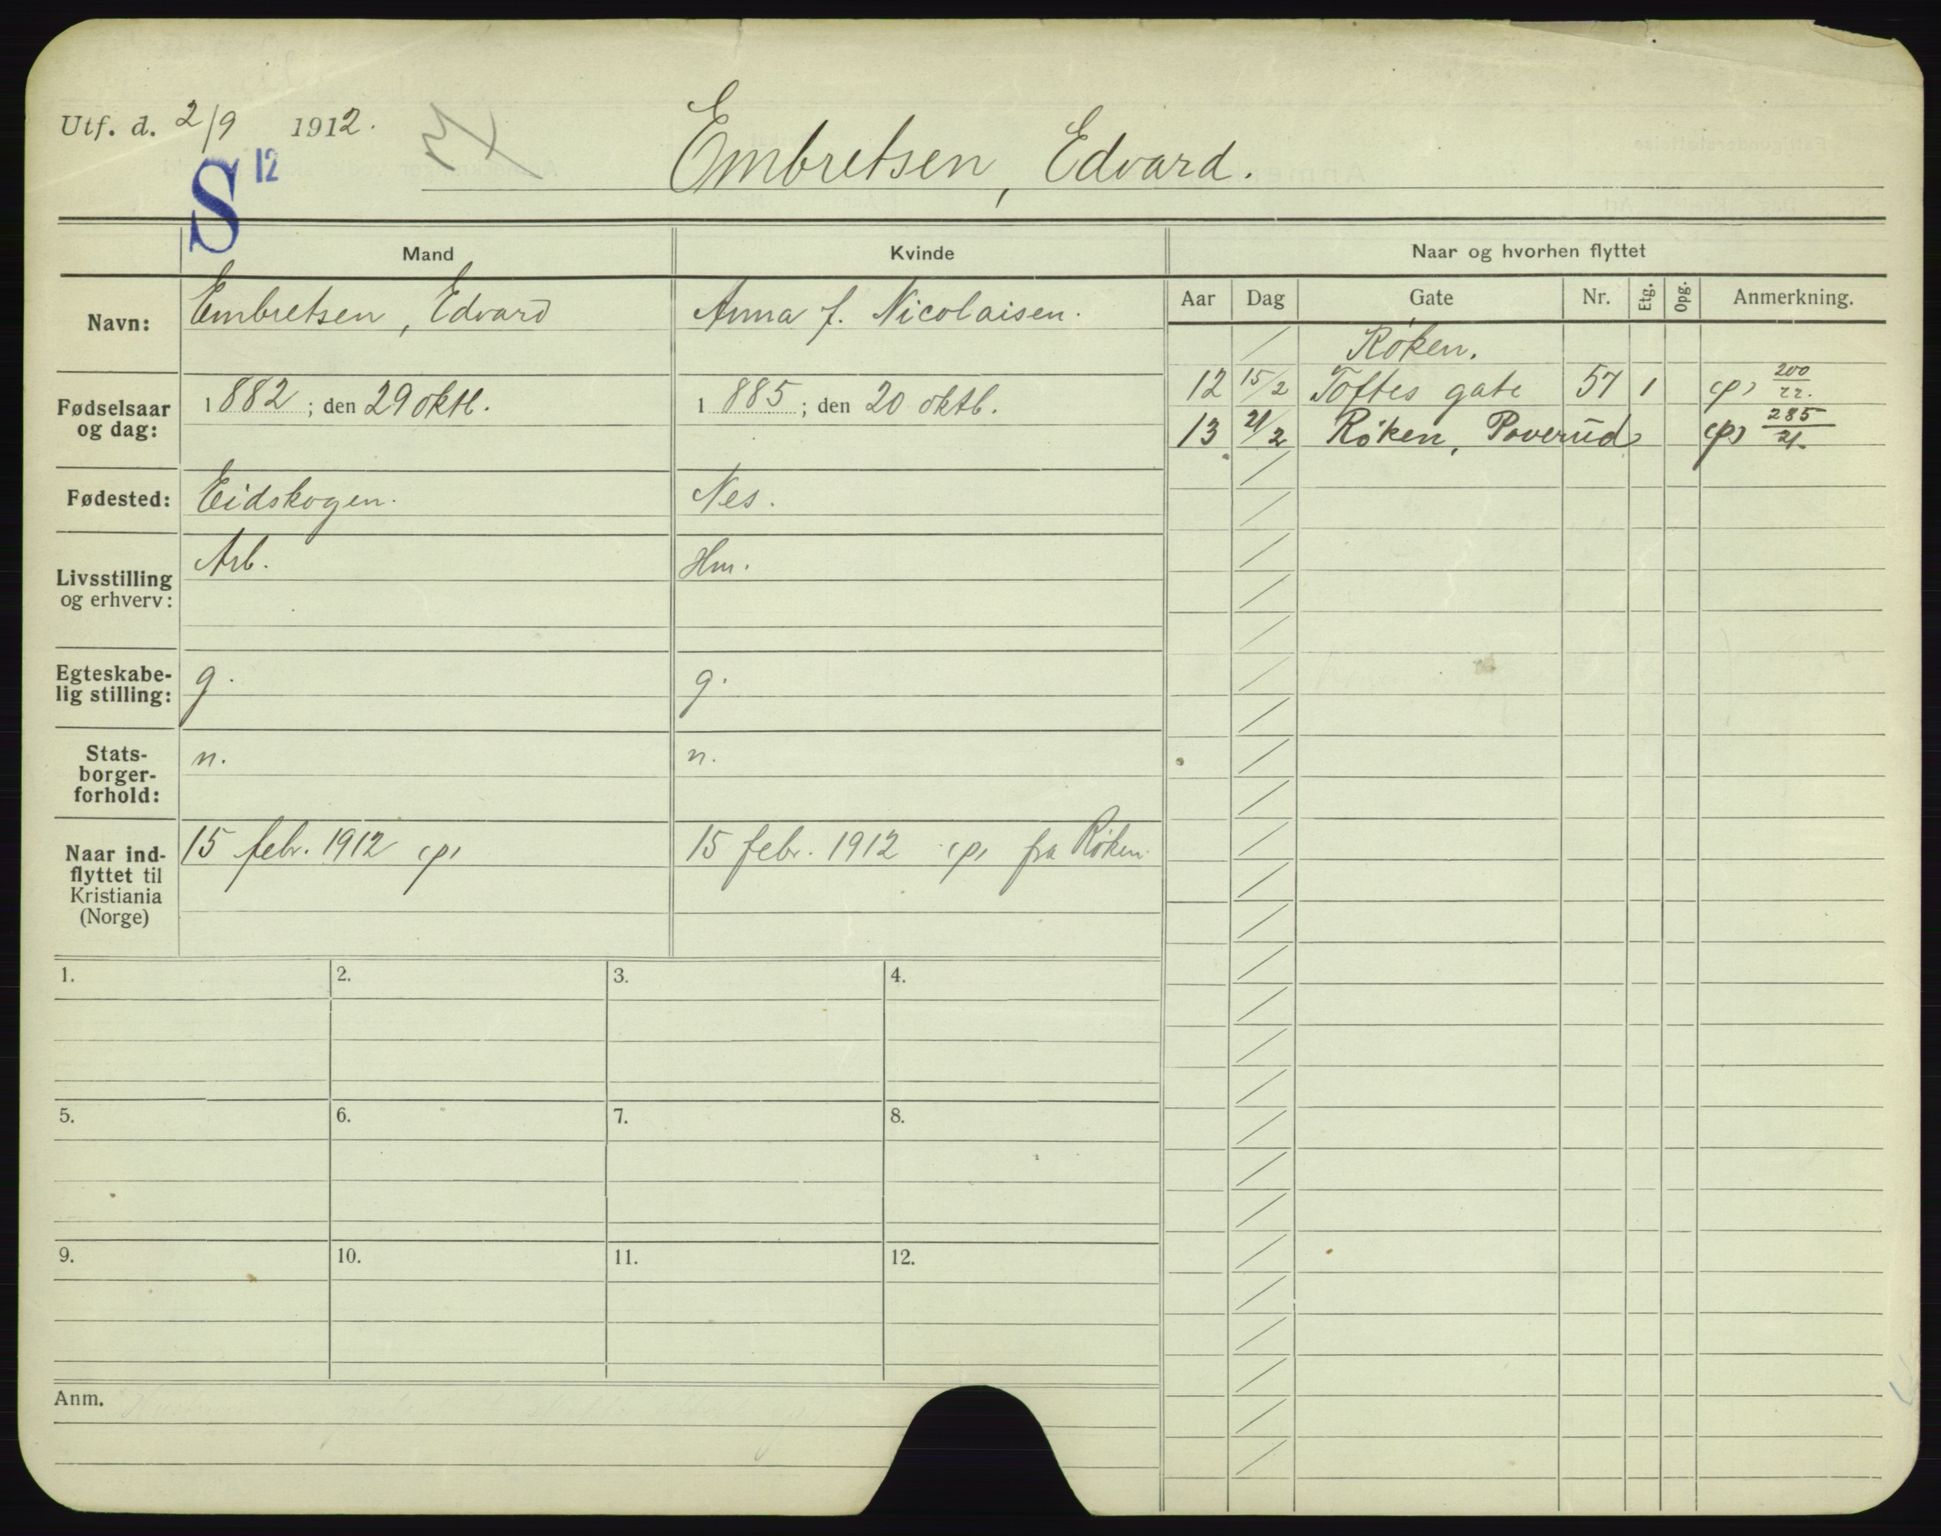 Utf. d. 2/9 1912.
S 12
Embretsen, Edvard.
Mand Kvinde Naar og hvorhen flyttet
Aar Dag Gate Nr. Etg. Opg. Anmerkning.
Navn: Embretsen, Edvard Anna f. Nicolaisen.
Fødselsaar og dag: 1882; den 29 oktb. 1885; den 20 oktb.
Fødested: Eidskogen. Nes.
Livsstilling og erhverv: Arb. Hm.
Egteskabelig stilling: g. g.
Statsborgerforhold: n. n.
Naar indflyttet til Kristiania (Norge) 15 febr. 1912 (p) 15 febr. 1912 (p) fra Røken.
Røken.
12 15/2 Toftes gate 57 1 (p) 200/22.
13 21/2 Røken, Poverud (p) 285/21.
1. 2. 3. 4.
5. 6. 7. 8.
9. 10. 11. 12.
Anm.